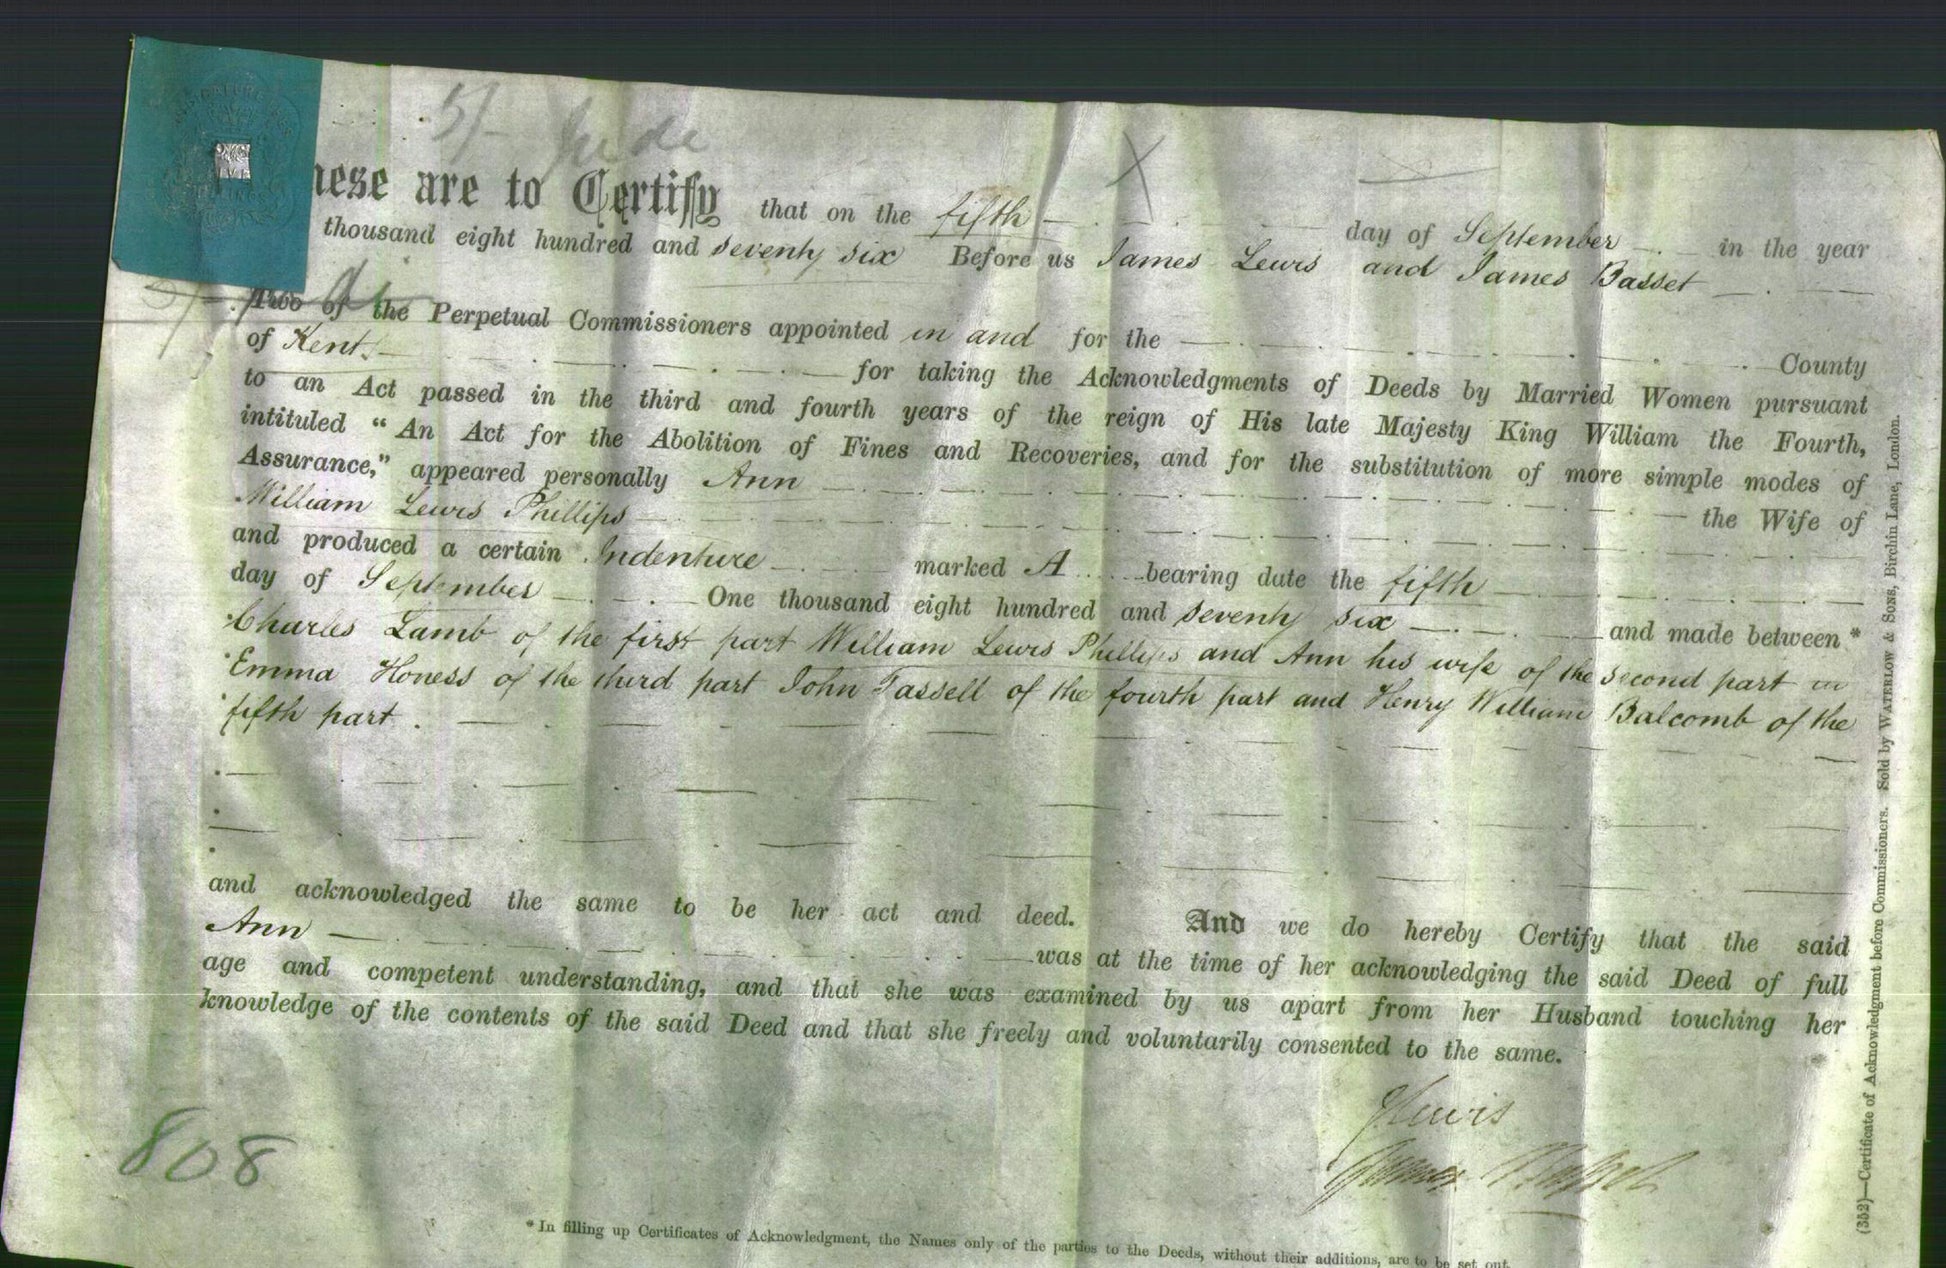 5/- Jude
hese are to Certify that on the fifth day of September in the year
thousand eight hundred and seventy six Before us James Lewis and James Basset
5/-
Two of the Perpetual Commissioners appointed in and for the County
of Kent for taking the Acknowledgments of Deeds by Married Women pursuant
to an Act passed in the third and fourth years of the reign of His late Majesty King William the Fourth,
intituled “An Act for the Abolition of Fines and Recoveries, and for the substitution of more simple modes of
Assurance,” appeared personally Ann the Wife of
William Lewis Phillips
and produced a certain Indenture marked A bearing date the fifth
day of September One thousand eight hundred and seventy six and made between*
Charles Lamb of the first part William Lewis Phillips and Ann his wife of the second part
Emma Honess of the third part John Tassell of the fourth part and Henry William Balcomb of the
fifth part.
and acknowledged the same to be her act and deed. And we do hereby Certify that the said
Ann was at the time of her acknowledging the said Deed of full
age and competent understanding, and that she was examined by us apart from her Husband touching her
knowledge of the contents of the said Deed and that she freely and voluntarily consented to the same.
J Lewis
James Basset
808
*In filling up Certificates of Acknowledgment, the Names only of the parties to the Deeds, without their additions, are to be set out.
(352)—Certificate of Acknowledgment before Commissioners. Sold by WATERLOW & SONS, Birchin Lane, London.